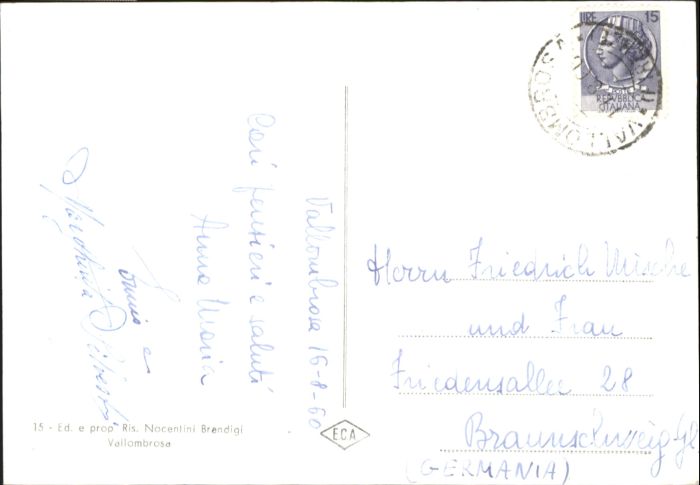 LIRE 15
POSTE
REPVBBLICA
ITALIANA
VALLOMBROSA
Vallombrosa 16-8-60
Cari pensieri e saluti
Anna Maria
Herrn Friedrich Mische
und Frau
Friedensallee 28
Braunschweig
(GERMANIA)
15 - Ed. e prop. Ris. Nocentini Brendigi
Vallombrosa
E.C.A.